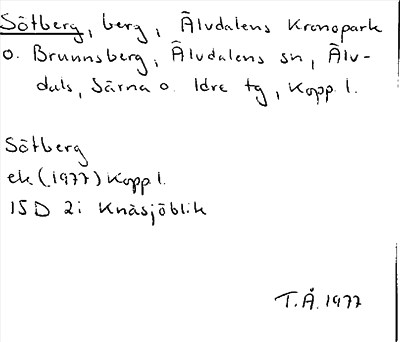 Sötberg, berg, i Älvdalens Kronopark
o. Brunnsberg, Älvdalens sn, Älv-
dals, Särna o. Idre tg, Kopp l.
Sötberg
ek (1977) Kopp l.
15D 2i Knäsjöblik
T.Å. 1977